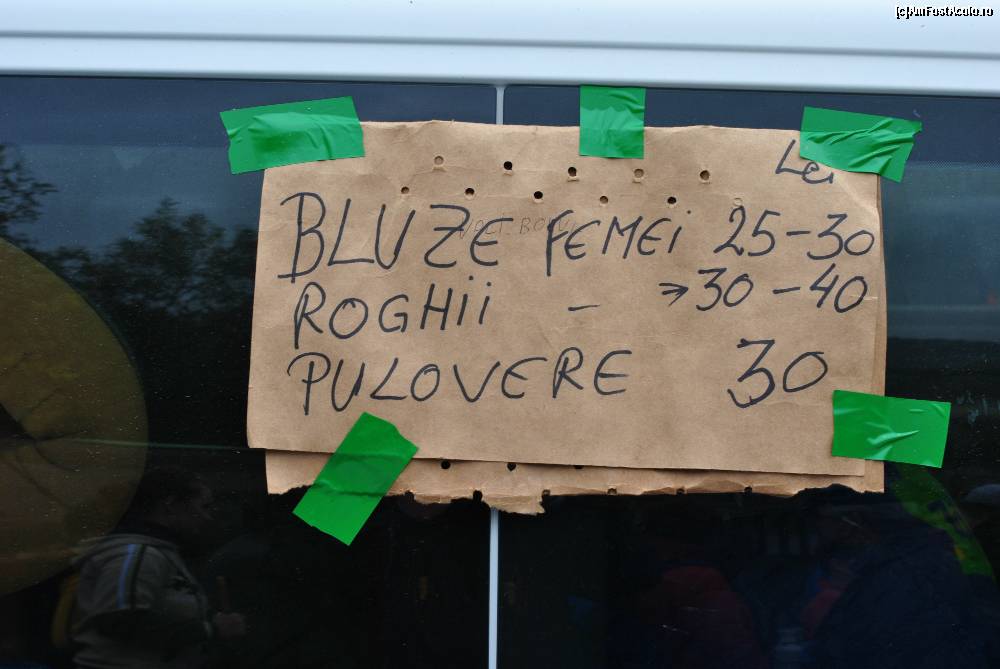 [c]AmFostAcolo.ro
Lei
BLUZE FEMEI 25-30
ROGHII - → 30-40
PULOVERE 30